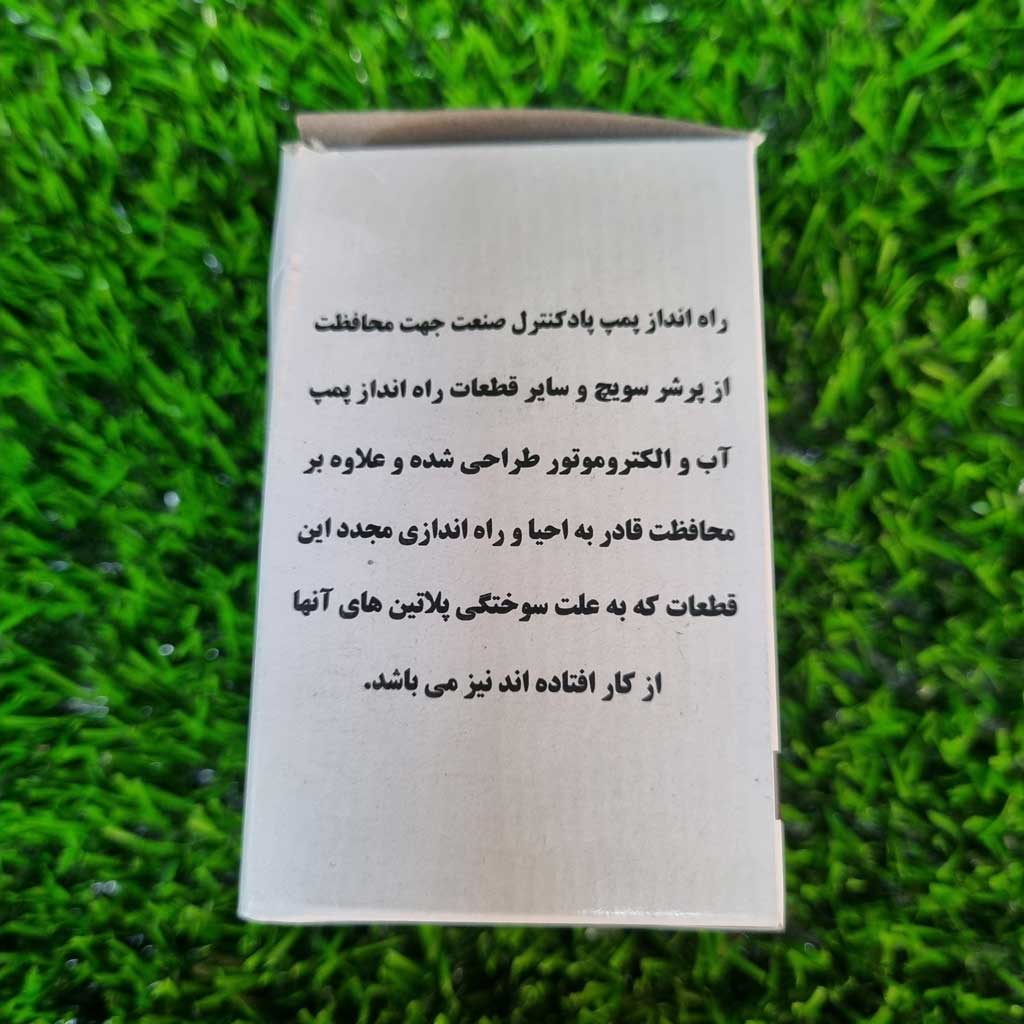 راه انداز پمپ پادکنترل صنعت جهت محافظت
از پرشر سویچ و سایر قطعات راه انداز پمپ
آب و الکتروموتور طراحی شده و علاوه بر
محافظت قادر به احیا و راه اندازی مجدد این
قطعات که به علت سوختگی پلاتین های آنها
از کار افتاده اند نیز می باشد.